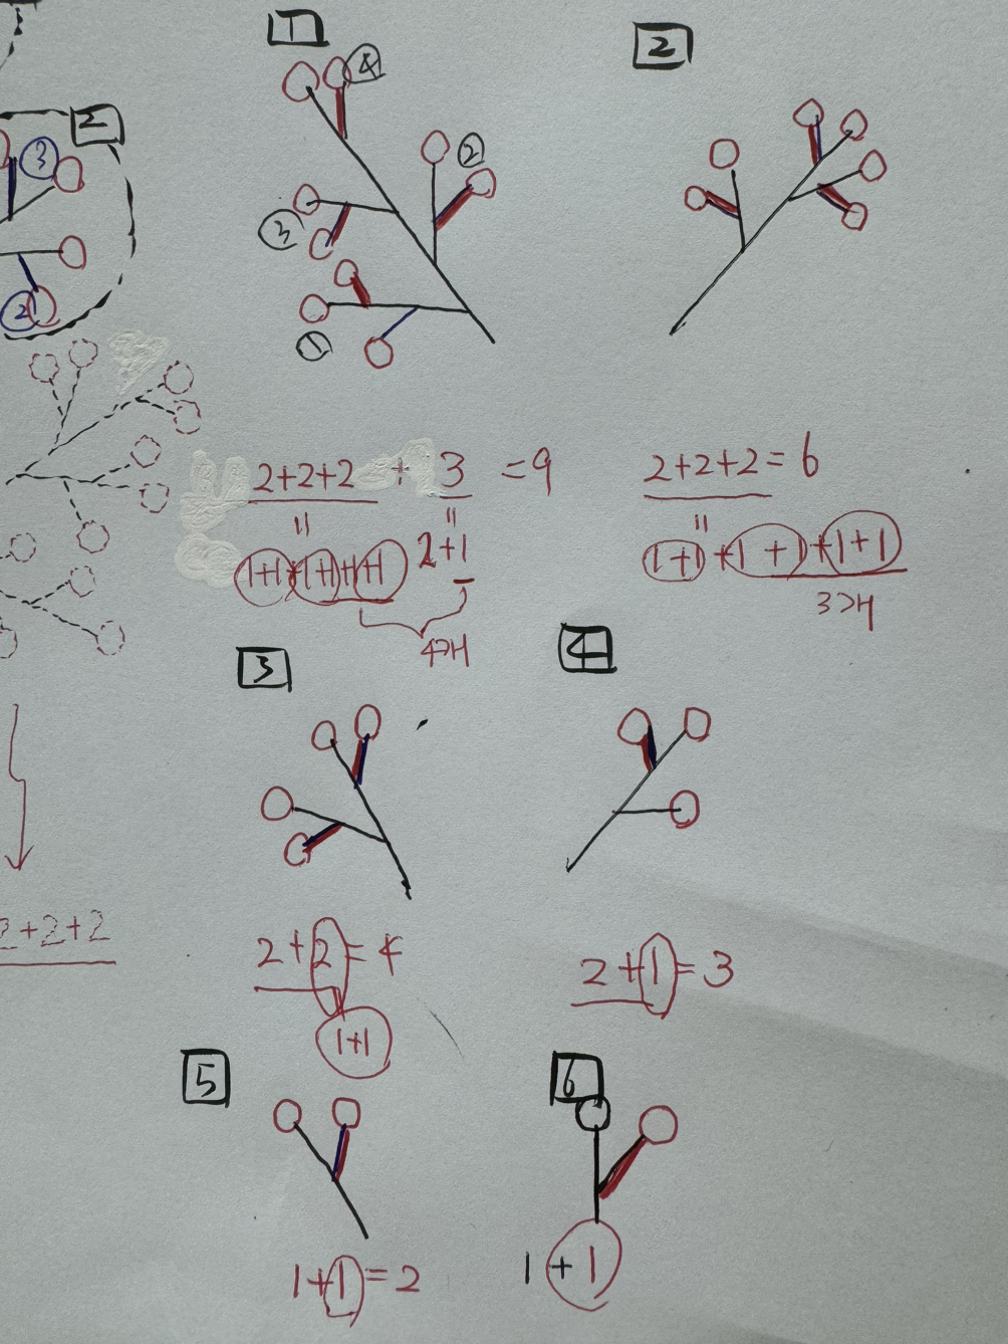 1
2
④
②
③
①
2
③
②
2+2+2 + 3 =9
=
=
1+1+1+1+1+1 2+1
4개
2+2+2=6
=
1+1+1+1+1+1
3개
3
4
2+2=4
=
1+1
2+1=3
2+2+2
5
6
1+1=2
1+1